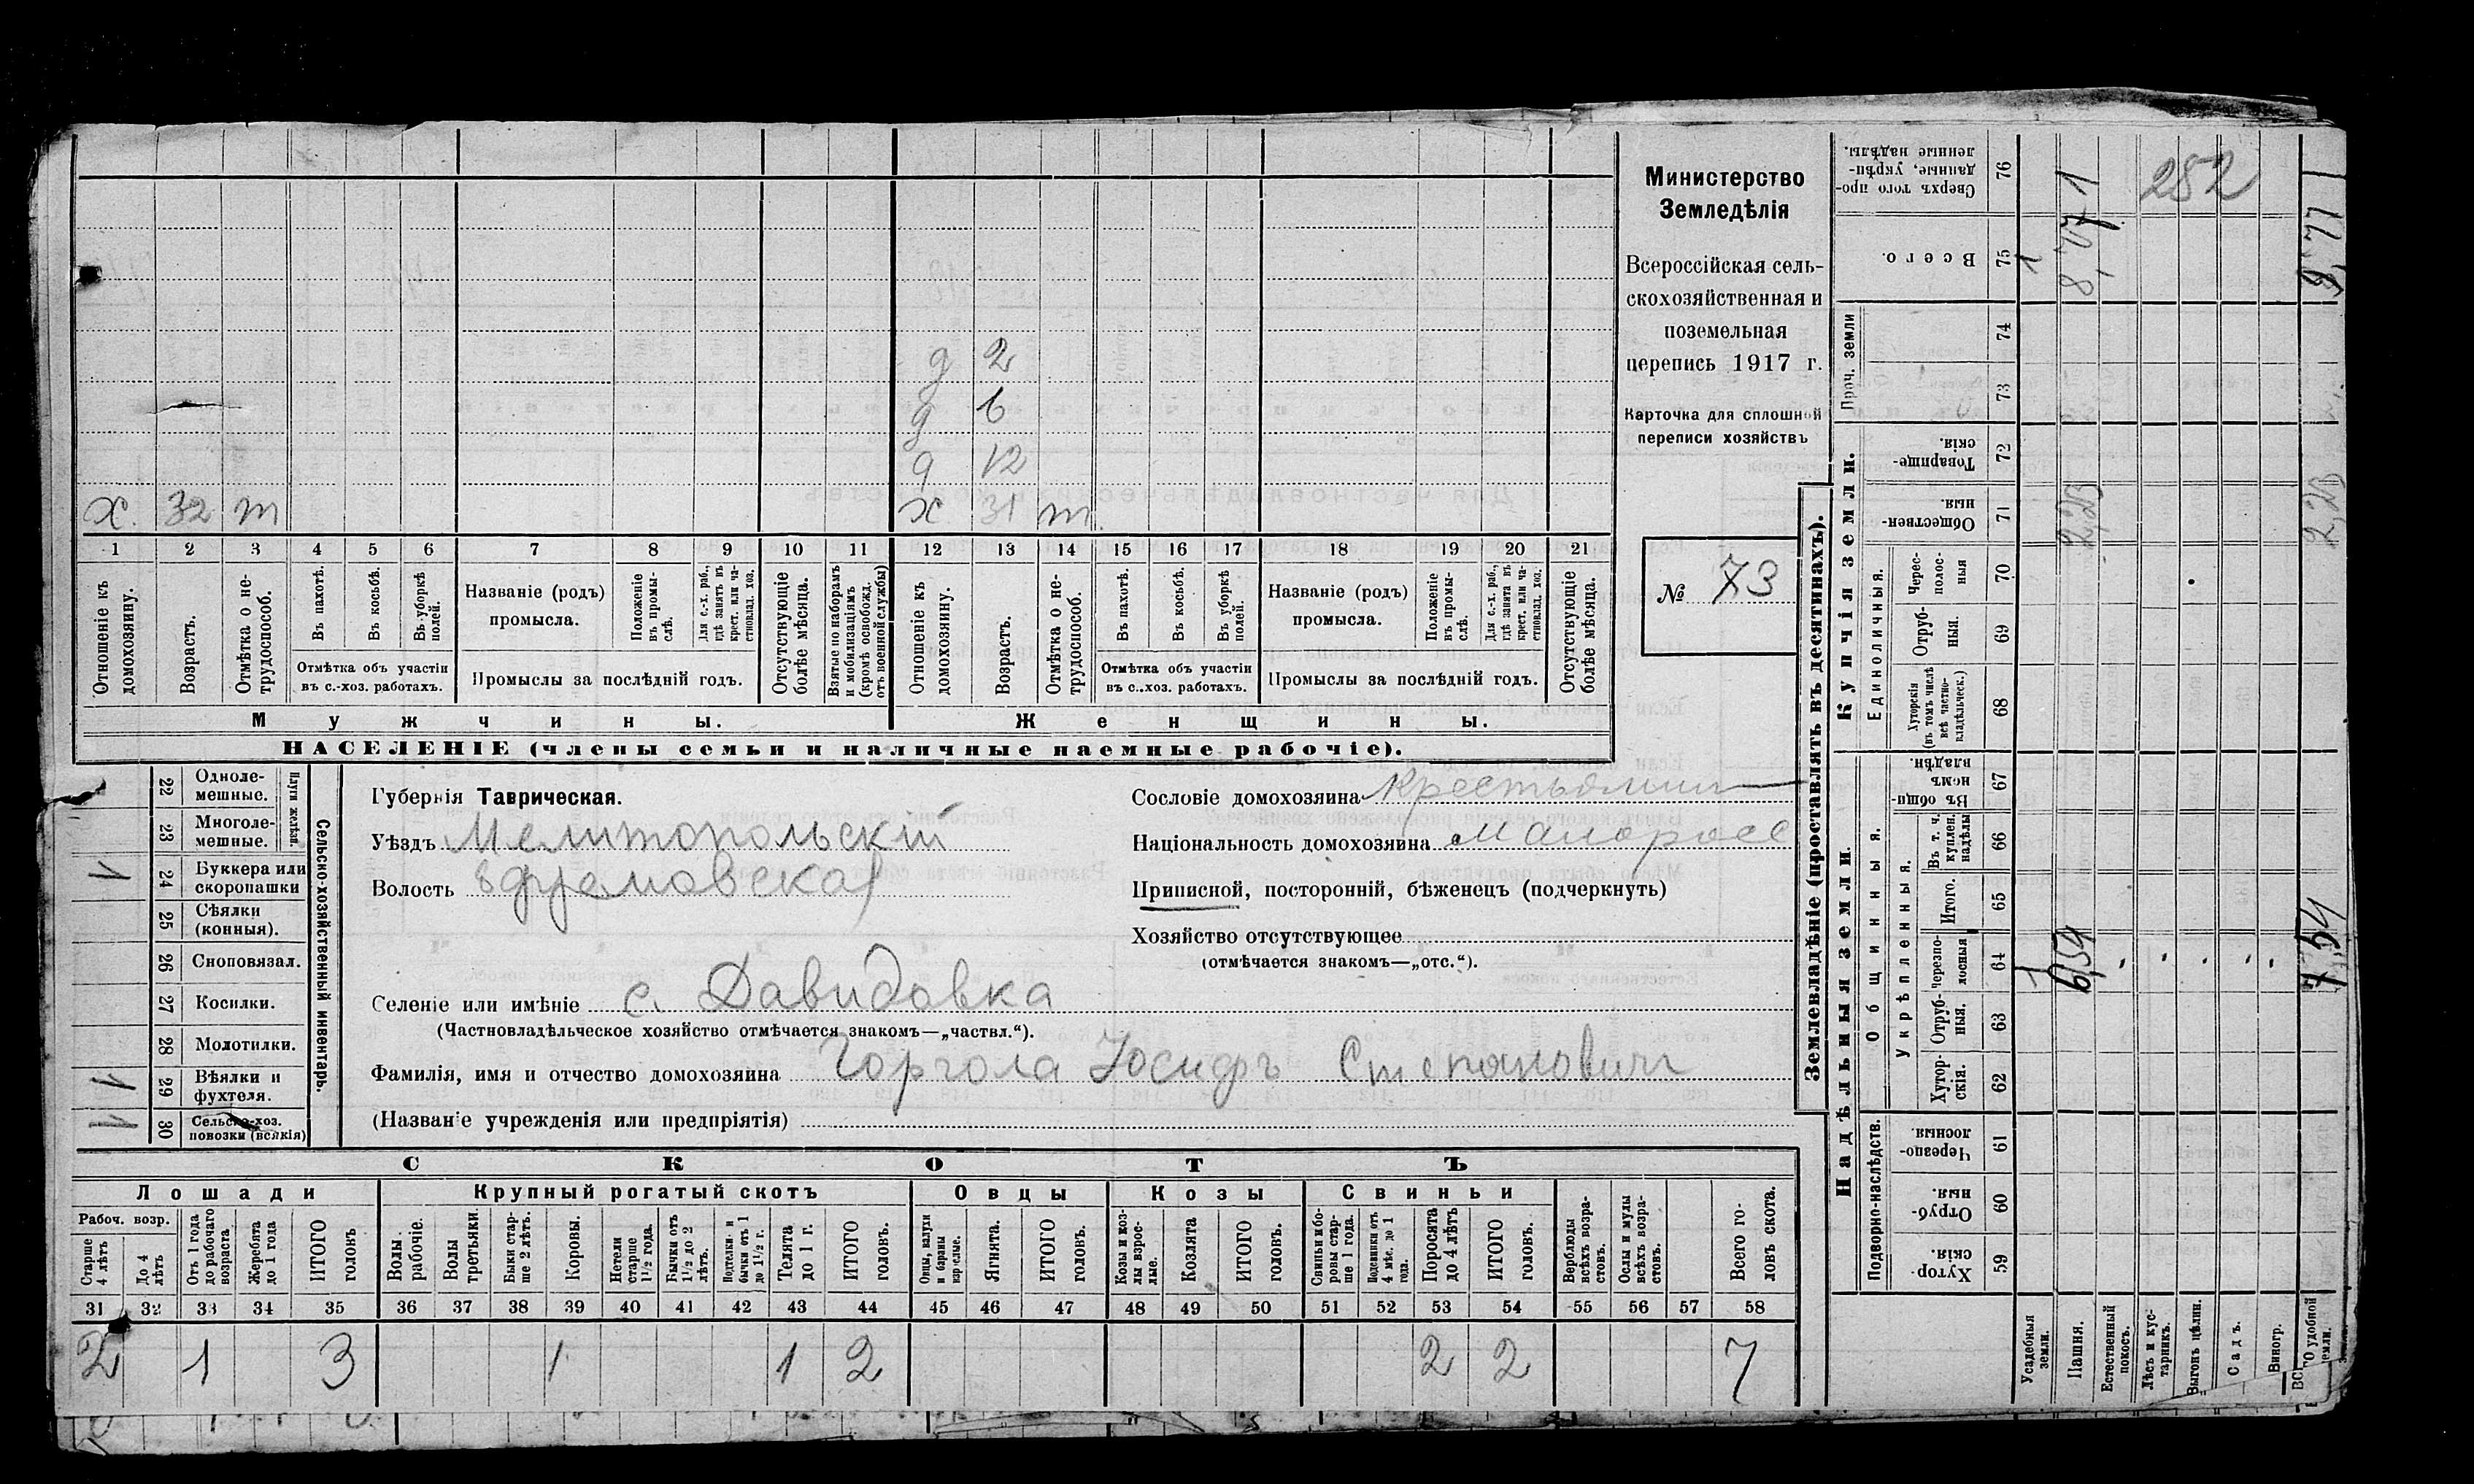 д 2
д 6
д 12
х 32 т х 31 т
1 2 3 4 5 6 7 8 9 10 11 12 13 14 15 16 17 18 19 20 21
Отношеніе къ домохозяину.
Возрастъ.
Отмѣтка о не-
трудоспособ.
Въ пахотѣ.
Въ косьбѣ.
Въ уборкѣ
полей.
Отмѣтка объ участіи
въ с.-хоз. работахъ.
Названіе (родъ)
промысла.
Положеніе
въ промы-
слѣ.
Для с.-х. раб.,
гдѣ занятъ въ
крест. или ча-
стновлад. хоз.
Промыслы за послѣдній годъ.
Отсутствующіе
болѣе мѣсяца.
Взятые по наборамъ
и мобилизаціямъ
(кромѣ освобожд.
отъ военной службы)
Отношеніе къ
домохозяину.
Возрастъ.
Отмѣтка о не-
трудоспособ.
Въ пахотѣ.
Въ косьбѣ.
Въ уборкѣ
полей.
Отмѣтка объ участіи
въ с.-хоз. работахъ.
Названіе (родъ)
промысла.
Положеніе
въ промы-
слѣ.
Для с.-х. раб.,
гдѣ занята въ
крест. или ча-
стновлад. хоз.
Промыслы за послѣдній годъ.
Отсутствующіе
болѣе мѣсяца.
Мужчины. Женщины.
НАСЕЛЕНІЕ (члены семьи и наличные наемные рабочіе).
Министерство
Земледѣлія
Всероссійская сель-
скохозяйственная и
поземельная
перепись 1917 г.
Карточка для сплошной
переписи хозяйствъ
№ 73
22 Одноле-
мешные.
23 Многоле-
мешные.
Плуги желѣзн.
1 24 Буккера или
скоропашки
25 Сѣялки
(конныя).
26 Сноповязал.
27 Косилки.
28 Молотилки.
1 29 Вѣялки и
фухтеля.
1 30 Сельско-хоз.
повозки (всякія)
Сельско-хозяйственный инвентарь.
Губернія Таврическая.
Уѣздъ Мелитопольскій
Волость Ефремовская
Селеніе или имѣніе с. Давидовка
(Частновладѣльческое хозяйство отмѣчается знакомъ—„частвл.“).
Фамилія, имя и отчество домохозяина Горгола Іосифъ Степановичъ
(Названіе учрежденія или предпріятія)
Сословіе домохозяина Крестьянин
Національность домохозяина малоросс
Приписной, посторонній, бѣженецъ (подчеркнуть)
Хозяйство отсутствующее
(отмѣчается знакомъ—„отс.“).
СКОТЪ
Лошади Крупный рогатый скотъ Овцы Козы Свиньи
Рабоч. возр.
Старше
4 лѣтъ
До 4
лѣтъ
Отъ 1 года
до рабочаго
возраста
Жеребята
до 1 года
ИТОГО
головъ
Волы
рабочіе.
Волы
третьяки.
Быки стар-
ше 2 лѣтъ.
Коровы.
Нетели
старше
1½ года.
Бычки отъ
1½ до 2
лѣтъ.
Подтелки и
бычки отъ 1
до 1½ г.
Телята
до 1 г.
ИТОГО
головъ.
Овцы, валухи
и бараны
взрослые.
Ягнята.
ИТОГО
головъ.
Козы и коз-
лы взрос-
лые.
Козлята
ИТОГО
головъ.
Свиньи и бо-
ровы стар-
ше 1 года.
Подсвинки отъ
4 мѣс. до 1
года.
Поросята
до 4 лѣтъ
ИТОГО
головъ.
Верблюды
всѣхъ возра-
стовъ.
Ослы и мулы
всѣхъ возра-
стовъ.
Всего го-
ловъ скота.
31 32 33 34 35 36 37 38 39 40 41 42 43 44 45 46 47 48 49 50 51 52 53 54 55 56 57 58
2 1 3 1 1 2 2 2 7
Землевладѣніе (проставлять въ десятинахъ).
Сверхъ того про-
данные, укрѣп-
ленные надѣлы.
76
252
Всего.
75
1 8,771 9,771
Проч. земли
74
73
Купчія земли.
Товарище-
скія.
72
Обществен-
ныя
71
2,23 2,23
Единоличныя.
Черес-
полос-
ныя
70
Отруб-
ныя.
69
Хуторскія
(въ томъ числѣ
всѣ частно-
владѣльческ.)
68
Надѣльныя земли.
Общинныя.
Въ общин-
номъ
владѣн.
67
Укрѣпленныя.
Въ т. ч.
куплен.
надѣлы
66
Итого.
65
черезпо-
лосныя
64
1 6,54 7,54
Отруб-
ныя.
63
Хутор-
скія.
62
Подворно-наслѣдств.
Черезпо-
лосныя.
61
Отруб-
ныя.
60
Хутор-
скія.
59
Усадебныя
земли.
Пашня.
Естественный
покосъ.
Лѣсъ и кус-
тарникъ.
Выгонъ цѣлин.
Садъ.
Виногр.